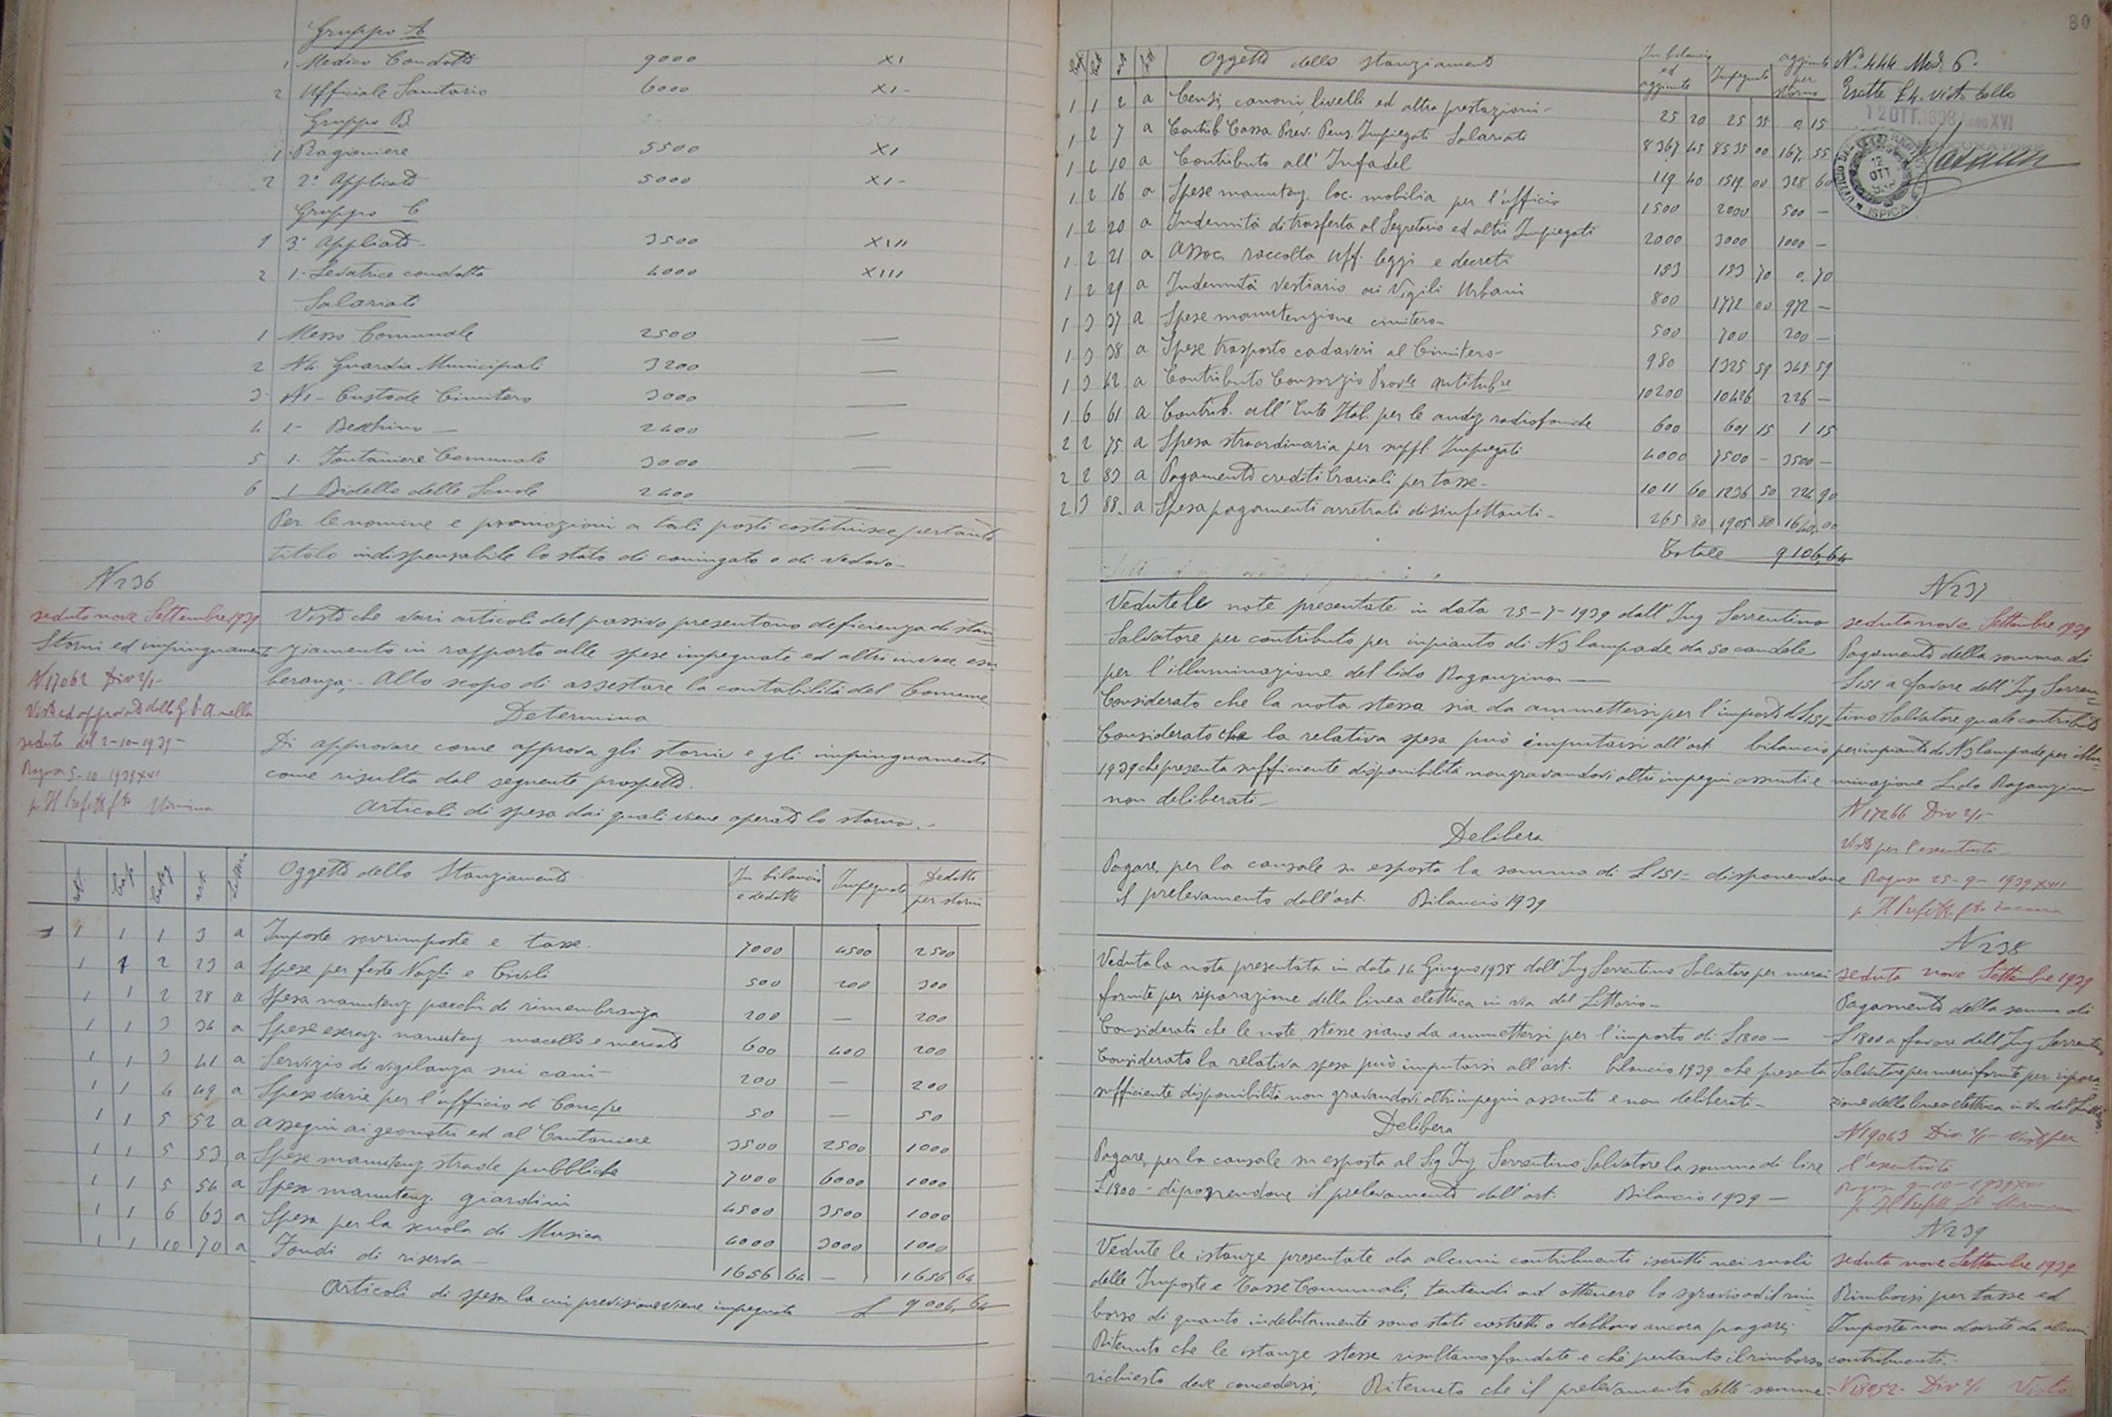 Gruppo A
1 Medico Condotto 9000 XI
2 Ufficiale Sanitario 6000 XI -
Gruppo B
1 Ragioniere 5500 XI
2 2° Applicato 5000 XI -
Gruppo C
1 3° Applicato 3500 XIII
2 1 - Levatrice condotta 4000 XIII
Salariati
1 Messo Comunale 2500 —
2 N4. Guardia Municipali 3200 —
3 N1 - Custode Cimitero 3000 —
4 1 - Becchino — 2400 —
5 1. Fontaniere Comunale 3000 —
6 1 Bidello delle Scuole 2400
Per le nomine e promozioni a tali posti costituisce pertanto
titolo indispensabile lo stato di coniugato o di vedovo -
N 236
seduta nove Settembre 1939
Storni ed impinguamenti
N 17062 Div 2/1 -
Visto ed approvato dalla G P A nella
seduta del 2-10-1939 -
Ragusa 5-10 1939 XVI
p Il Prefetto fto
Visto che vari articoli del passivo presentano deficienza di stan
ziamento in rapporto alle spese impegnate ed altri invece esu
beranza; - Allo scopo di assestare la contabilità del Comune
Determina
Di approvare come approva gli storni e gli impinguamenti
come risulta dal seguente prospetto.
Articoli di spesa dai quali viene operato lo storno. -
Oggetto dello Stanziamento In bilancio e dedotte Impegnate Dedotte per storni
1 1 1 3 a Imposte sovrimposte e tasse. 7000 4500 2500
1 1 2 23 a Spese per feste Nazli e Civili 500 200 300
1 1 2 28 a Spesa manuteng parchi di rimembranza 200 — 200
1 1 3 34 a Spese eserciz. manuteng macello e mercato 600 400 200
1 1 3 41 a Servizio di vigilanza sui cani - 200 — 200
1 1 4 49 a Spese varie per l'ufficio di Concre 50 — 50
1 1 5 52 a Assegni ai geometri ed al Cantoniere 3500 2500 1000
1 1 5 53 a Spese manuteng strade pubbliche 7000 6000 1000
1 1 5 54 a Spesa manuteng. giardini 4500 3500 1000
1 1 6 63 a Spesa per la scuola di Musica 4000 3000 1000
1 1 10 70 a Fondi di riserva - 1656 64 — 1656 64
Articoli di spesa la cui previsione viene impegnata £ 9006, 64
80
Oggetto dello stanziamento In bilancio ed aggiunte Impegnate aggiunte per storno
1 1 2 a Censi, canoni, livelli ed altre prestazioni - 25 20 25 35 0, 15
1 2 7 a Contrib Cassa Prev. Pens. Impiegati Salariati 8367 45 8535 00 167, 55
1 2 10 a Contributo all' Infadel 119 40 1519 00 328 60
1 2 16 a Spese manuteng. loc. mobilia per l'ufficio 1500 2000 500 —
1 2 20 a Indennità di trasferta al Segretario ed altri Impiegati 2000 3000 1000 —
1 2 21 a Assoc. raccolta uff. leggi e decreti 153 153 70 0, 70
1 2 29 a Indennità vestiario ai Vigili Urbani 800 1772 00 972 —
1 3 37 a Spese manutenzione cimitero - 500 700 200 —
1 3 38 a Spese trasporto cadaveri al Cimitero - 980 1325 59 345 59
1 3 42 a Contributo Consorzio Provle antitubre 10200 10426 226 —
1 6 61 a Contrib. all' Ente Ital. per le audiz radiofoniche 600 601 15 1 15
2 2 75 a Spesa straordinaria per suppl Impiegati 4000 7500 - 3500 —
2 2 83 a Pagamento crediti erariali per tasse - 1011 60 1236 50 224 90
2 3 88 a Spesa pagamenti arretrati disinfettanti - 265 80 1905 80 1640,00
Totale 9106,64
N° 444 Mod 6.
Esatte £ 4. vista bollo
12 OTT. 1938 Anno XVI
12 OTT
ISPICA
Vedute le note presentate in data 25-7-1939 dall' Ing Serrentino
Salvatore per contributo per impianto di N3 lampade da 50 candele
per l'illuminazione del lido Raganzino —
Considerato che la nota stessa sia da ammettersi per l'importo di £ 151 -
Considerato che la relativa spesa può imputarsi all'art bilancio
1939 che presenta sufficiente disponibilità non gravandovi altri impegni assunti e
non deliberati -
Delibera
Pagare, per la causale su esposta la somma di £ 151 - disponendone
il prelevamento dall'art. Bilancio 1939
N 237
seduta nove Settembre 1939
Pagamento della somma di
£ 151 a favore dell' Ing Serren-
tino Salvatore quale contributo
per impianto di N3 lampade per illu-
minazione Lido Raganzino
N 17266 Div 2/1 -
Visto per l'esecutività
Ragusa 25-9-1939 XVII
p Il Prefetto fto
Veduta la nota presentata in data 14 Giugno 1938 dall' Ing Serrentino Salvatore per merci
fornite per riparazione della linea elettrica in via del Littorio -
Considerato che le note stesse siano da ammettersi per l'importo di £ 1800 -
Considerato la relativa spesa può imputarsi all'art. bilancio 1939 che presenta
sufficiente disponibilità non gravandovi altri impegni assunti e non deliberati -
Delibera
Pagare, per la causale su esposta al Sig Ing Serrentino Salvatore la somma di lire
£ 1800 - disponendone il prelevamento dall'art. Bilancio 1939 -
N 238
seduta nove Settembre 1939
Pagamento della somma di
£ 1800 a favore dell' Ing Serrentino
Salvatore per merci fornite per ripara-
zione della linea elettrica in via del Littorio
N 19043 Div 2/1 - Visto per
l'esecutività
Ragusa 9-10-1939 XVII
p Il Prefetto fto
Vedute le istanze presentate da alcuni contribuenti iscritti nei ruoli
delle Imposte e Tasse Comunali, tentendi ad ottenere lo sgravio ed il rim-
borso di quanto indebitamente sono stati costretti o debbono ancora pagare;
Ritenuto che le istanze stesse risultano fondate e che pertanto il rimborso
richiesto deve concedersi; Ritenuto che il prelevamento delle somme
N 239
seduta nove Settembre 1939
Rimborsi per tasse ed
Imposte non dovute da alcuni
contribuenti.
N 18052 - Div 2/1 Visto